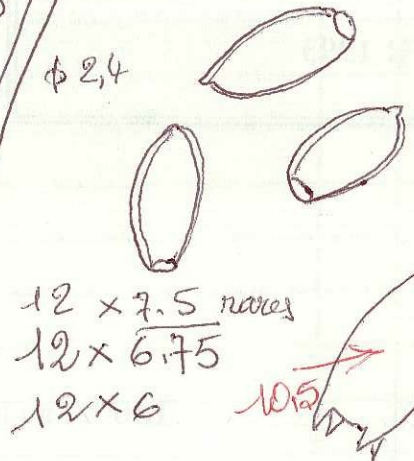 ϕ 2,4
12 × 7.5 rares
12 × 6.75
12 × 6
10.5